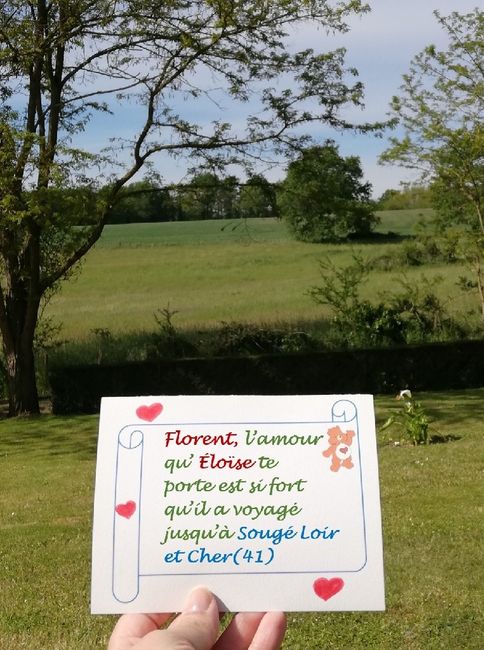 Florent, l'amour
qu' Éloïse te
porte est si fort
qu'il a voyagé
jusqu'à Sougé Loir
et Cher(41)